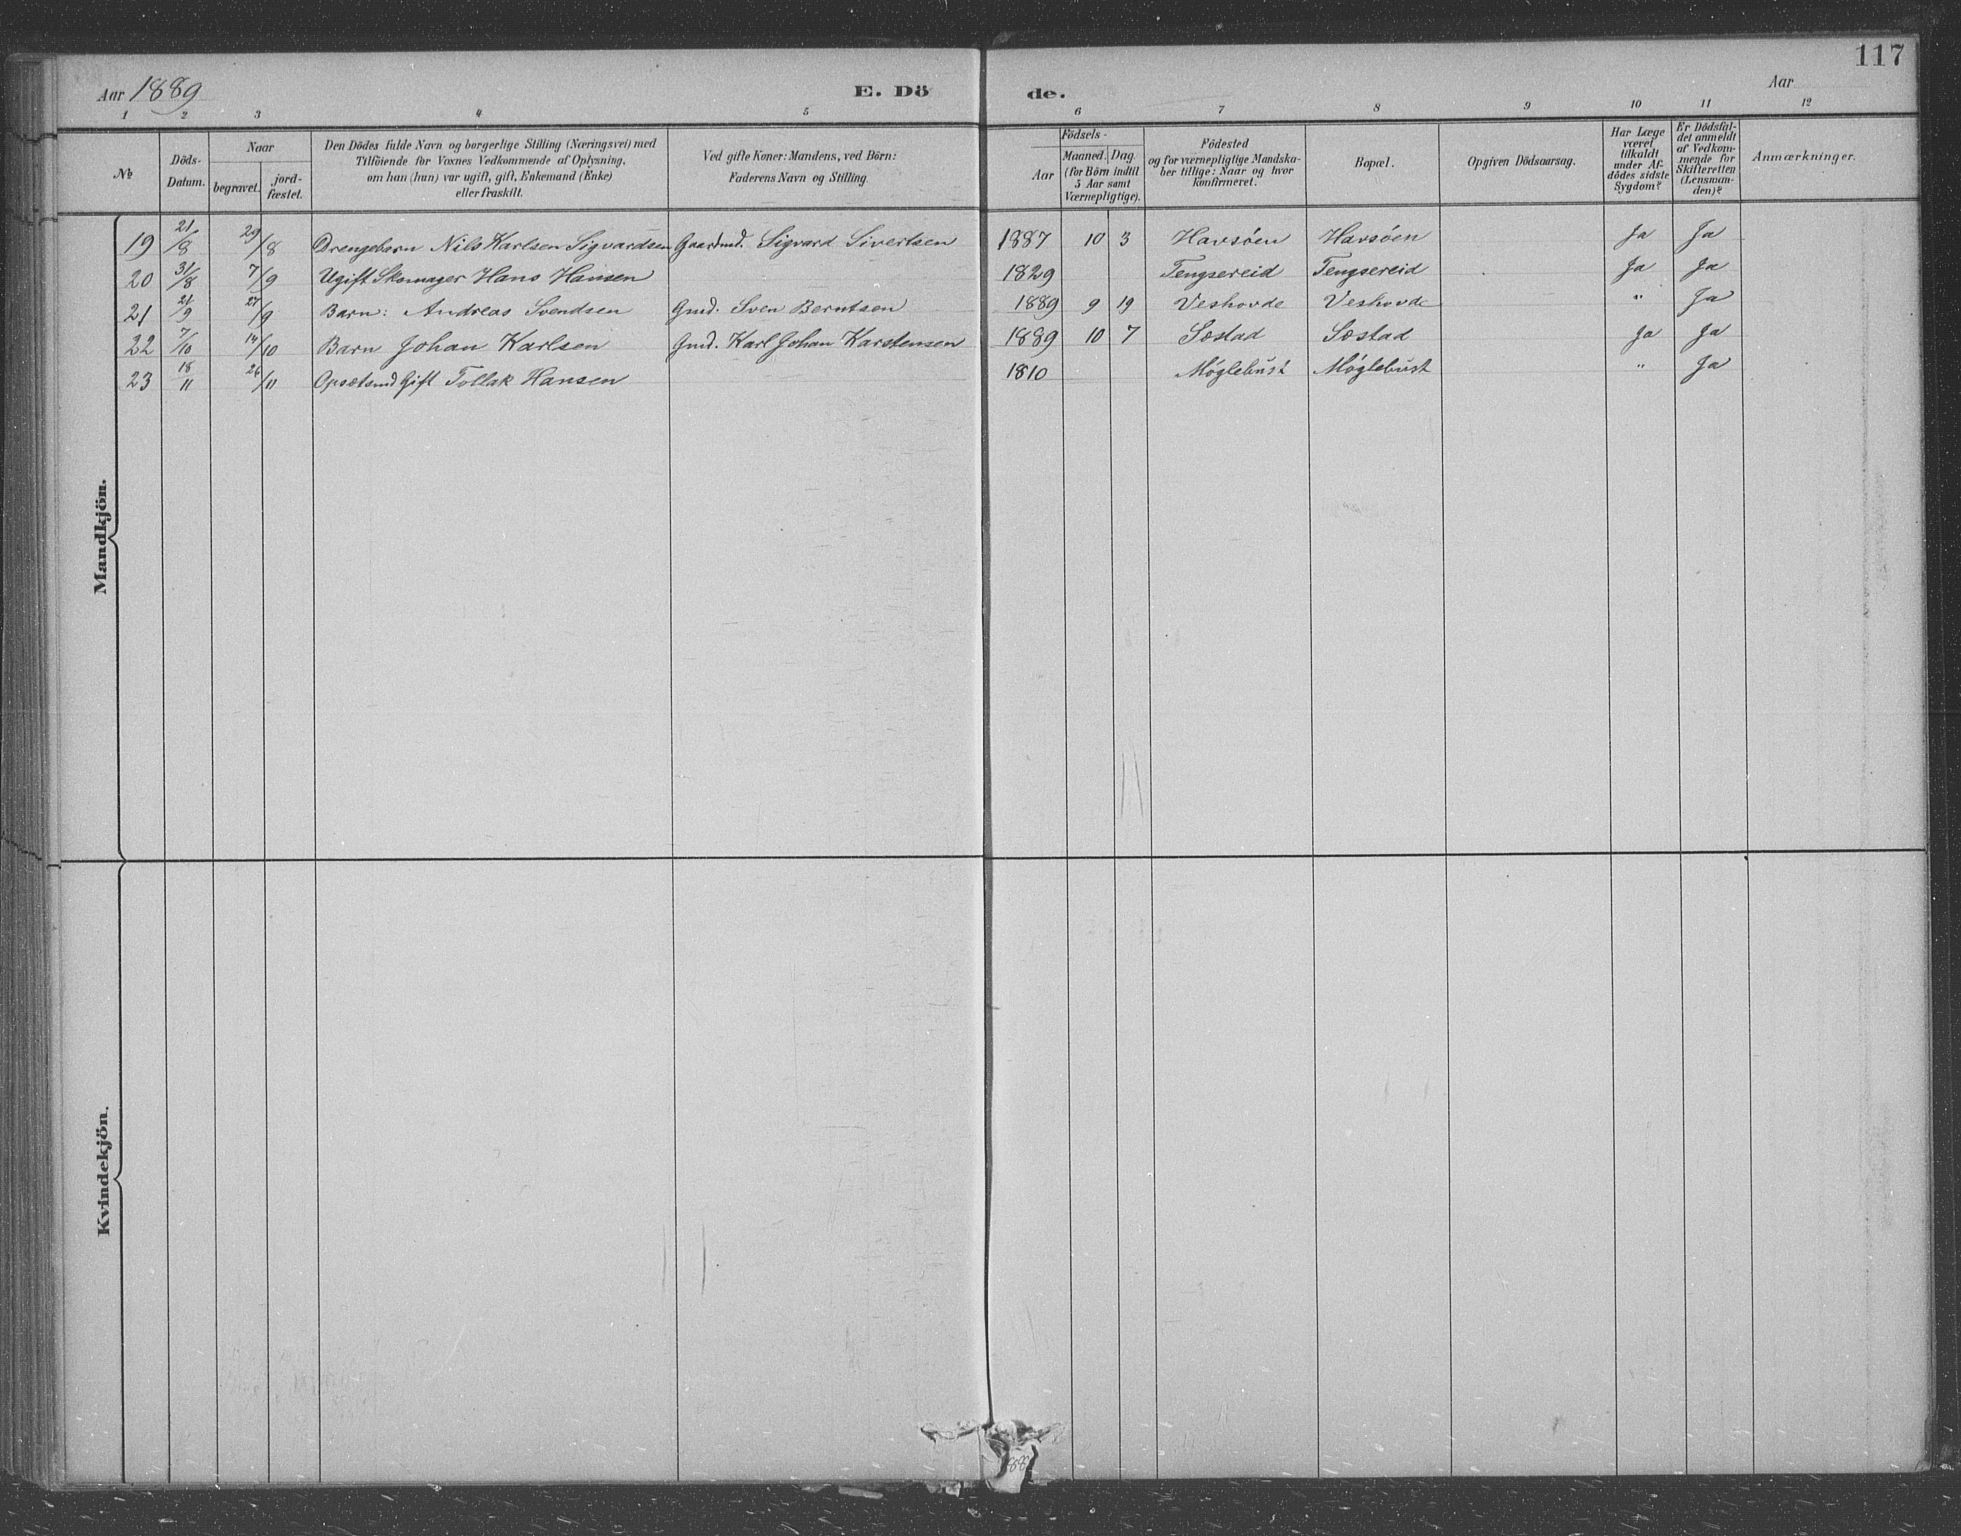 117
Aar 1889 E. Dö de. Aar
1 2 3 4 5 6 7 8 9 10 11 12
№ Döds-Datum. Naar begravet. jord-fæstet. Den Dödes fulde Navn og borgerlige Stilling (Næringsvei) med Tilföiende for Voxnes Vedkommende af Oplysning, om han (hun) var ugift, gift, Enkemand (Enke) eller fraskilt. Ved gifte Koner: Mandens, ved Börn: Faderens Navn og Stilling. Födsels- Aar Maaned. Dag. (for Börn indtil 5 Aar samt Værnepligtige). Födested og for værnepligtige Mandskaber tillige: Naar og hvor konfirmeret. Bopæl. Opgiven Dödsaarsag. Har Læge været tilkaldt under Afdödes sidste Sygdom? Er Dödsfaldet anmeldt af Vedkommende for Skifteretten (Lensmanden)? Anmærkninger.
Mandkjön.
19 21/8 29/8 Drengebarn Nils Karlsen Sigvardsen Gaardmd. Sigvard Sivertsen 1887 10 3 Havsöen Havsöen Ja Ja
20 31/8 7/9 Ugift Skomager Hans Hansen 1829 Tengsereid Tengsereid Ja Ja
21 21/9 27/9 Barn: Andreas Svendsen Gmd. Sven Berntsen 1889 9 19 Veshovde Veshovde " Ja
22 7/10 14/10 Barn Johan Karlsen Gmd. Karl Johan Karstensen 1889 10 7 Sæstad Sæstad Ja Ja
23 18/11 26/11 Opsætsmd Gift Tollak Hansen 1810 Møglebust Møglebust " Ja
Kvindekjön.